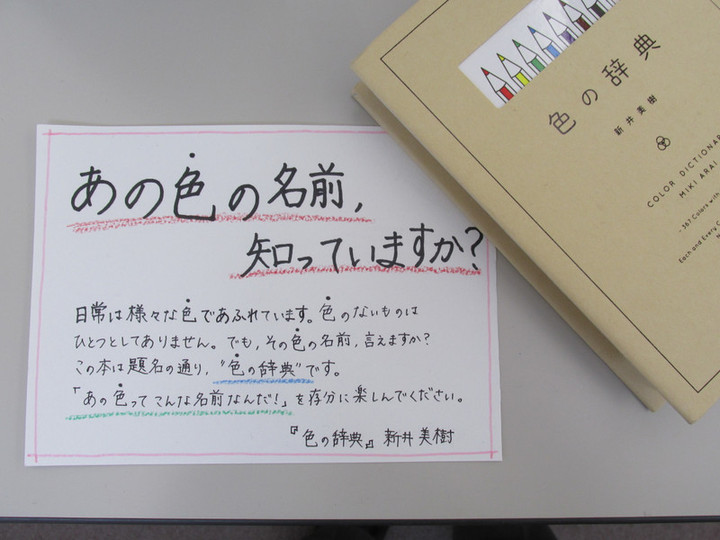 あの色の名前,
知っていますか?
日常は様々な色であふれています。色のないものは
ひとつとしてありません。でも,その色の名前,言えますか?
この本は題名の通り,"色の辞典"です。
「あの色ってこんな名前なんだ!」を存分に楽しんでください。
『色の辞典』 新井美樹
色の辞典
新井美樹
COLOR DICTIONAR
MIKI ARAI
-367 Colors with
Each and Every C